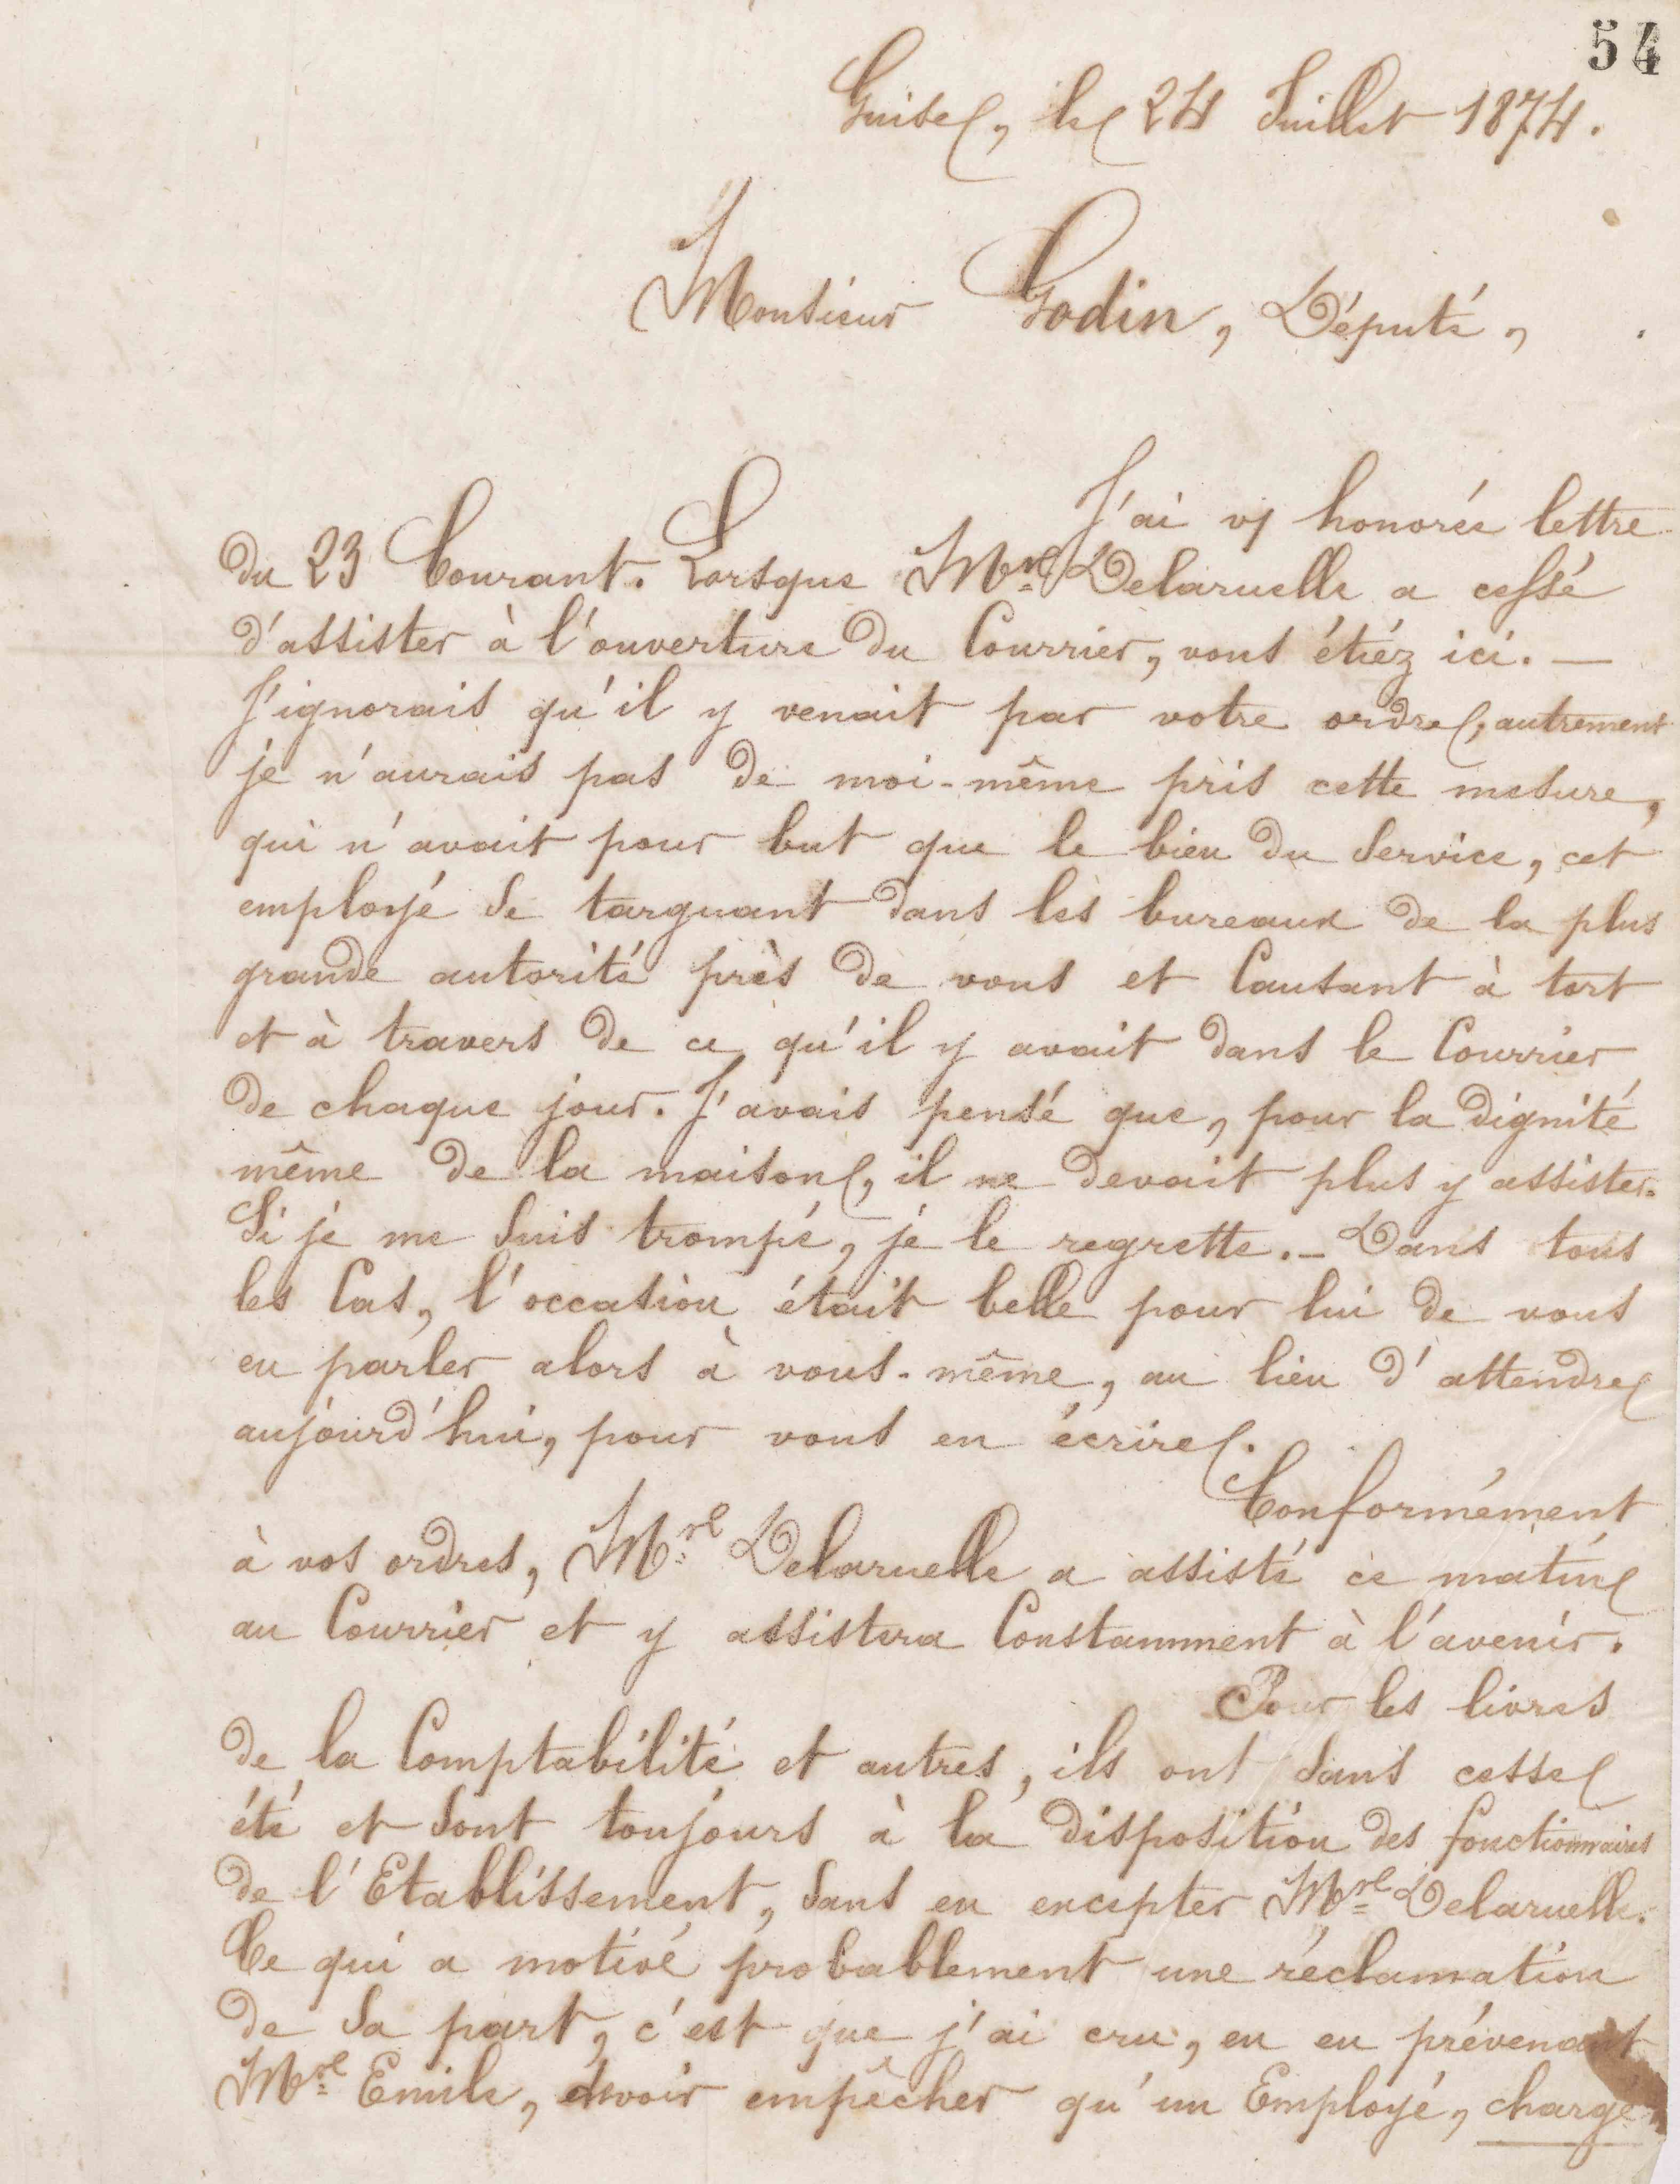 54
Guise, le 24 Juillet 1874.
Monsieur Godin, Député,
J'ai vs honorée lettre
du 23 Courant. Lorsque Mr Delaruelle a cessé
d'assister à l'ouverture du Courrier, vous étiez ici. —
J'ignorais qu'il y venait par votre ordre, autrement
je n'aurais pas de moi-même pris cette mesure,
qui n'avait pour but que le bien du Service, cet
employé se targuant dans les bureaux de la plus
grande autorité près de vous et Causant à tort
et à travers de ce qu'il y avait dans le Courrier
de chaque jour. J'avais pensé que, pour la dignité
même de la maison, il ne devait plus y assister.
Si je me suis trompé, je le regrette. — Dans tous
les Cas, l'occasion était belle pour lui de vous
en parler alors à vous-même, au lieu d'attendre
aujourd'hui, pour vous en écrire.
Conformément
à vos ordres, Mr Delaruelle a assisté ce matin
au Courrier et y assistera Constamment à l'avenir.
Pour les livres
de la Comptabilité et autres, ils ont sans cesse
été et sont toujours à la disposition des fonctionnaires
de l'Etablissement, sans en excepter Mr Delaruelle.
Ce qui a motivé probablement une réclamation
de sa part, c'est que j'ai cru, en en prévenant
Mr Emile, devoir empêcher qu'un Employé, chargé